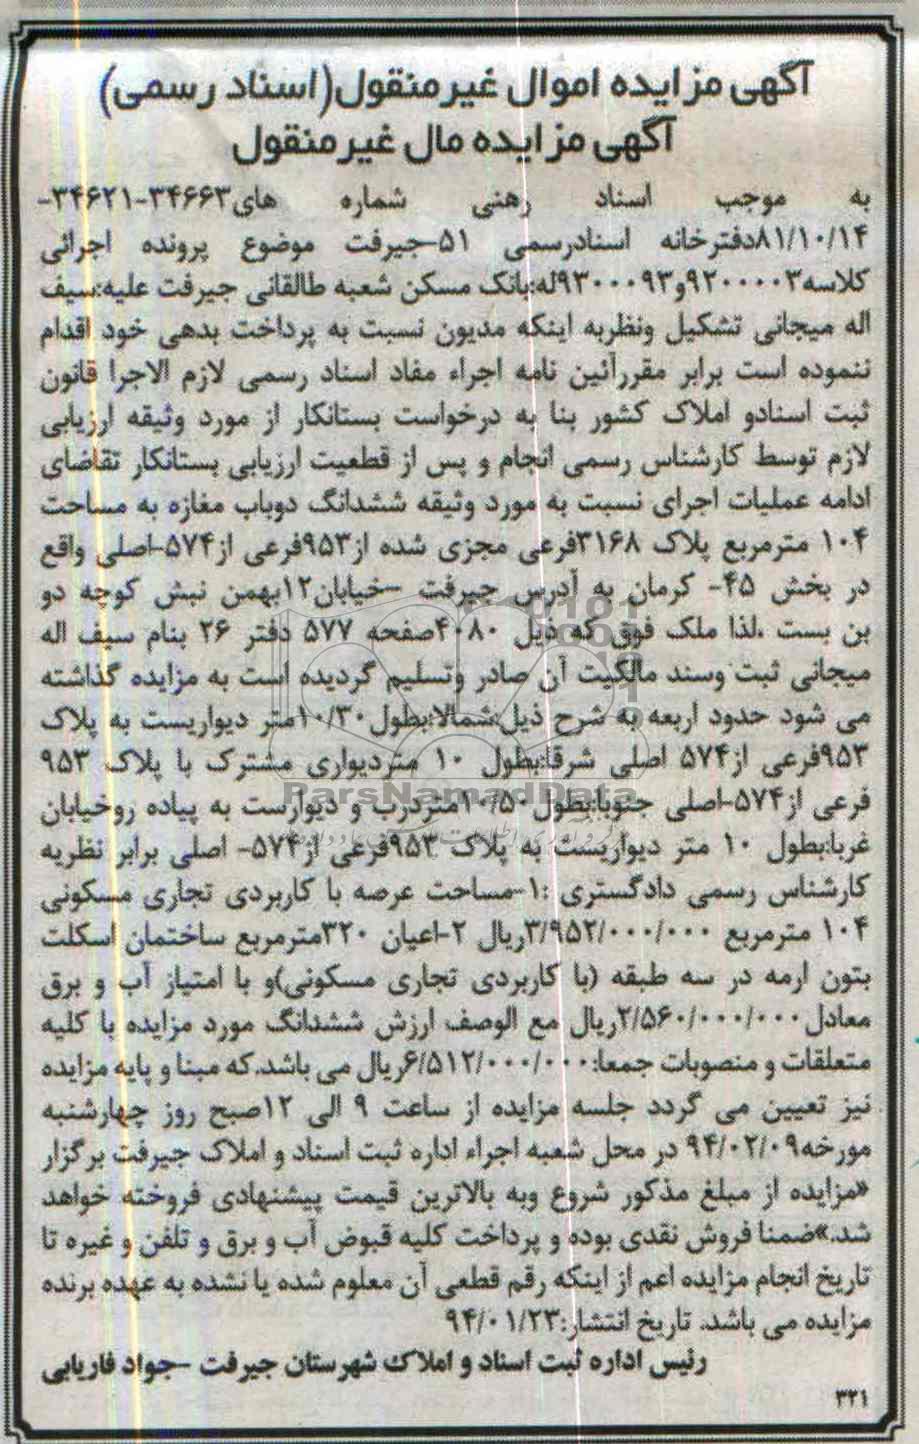 آگهی مزایده اموال غیرمنقول(اسناد رسمی)
آگهی مزایده مال غیرمنقول
به موجب اسناد رهنی شماره های۳۴۶۶۳-۳۴۶۲۱-
۸۱/۱۰/۱۴دفترخانه اسنادرسمی ۵۱-جیرفت موضوع پرونده اجرائی
کلاسه۹۲۰۰۰۰۳و۹۳۰۰۰۹۳له:بانک مسکن شعبه طالقانی جیرفت علیه:سیف
اله میجانی تشکیل ونظربه اینکه مدیون نسبت به پرداخت بدهی خود اقدام
ننموده است برابر مقررآئین نامه اجراء مفاد اسناد رسمی لازم الاجرا قانون
ثبت اسنادو املاک کشور بنا به درخواست بستانکار از مورد وثیقه ارزیابی
لازم توسط کارشناس رسمی انجام و پس از قطعیت ارزیابی بستانکار تقاضای
ادامه عملیات اجرای نسبت به مورد وثیقه ششدانگ دوباب مغازه به مساحت
۱۰۴ مترمربع پلاک ۳۱۶۸فرعی مجزی شده از۹۵۳فرعی از۵۷۴-اصلی واقع
در بخش ۴۵- کرمان به آدرس جیرفت -خیابان۱۲بهمن نبش کوچه دو
بن بست .لذا ملک فوق که ذیل ۴۰۸۰صفحه ۵۷۷ دفتر ۲۶ بنام سیف اله
میجانی ثبت وسند مالکیت آن صادر وتسلیم گردیده است به مزایده گذاشته
می شود حدود اربعه به شرح ذیل:شمالا:بطول۱۰/۳۰متر دیواریست به پلاک
۹۵۳فرعی از۵۷۴ اصلی شرقا:بطول ۱۰ متردیواری مشترک با پلاک ۹۵۳
فرعی از۵۷۴-اصلی جنوبا:بطول ۱۰/۵۰متردرب و دیوارست به پیاده روخیابان
غربا:بطول ۱۰ متر دیواریست به پلاک ۹۵۳فرعی از۵۷۴- اصلی برابر نظریه
کارشناس رسمی دادگستری :۱-مساحت عرصه با کاربردی تجاری مسکونی
۱۰۴ مترمربع ۳/۹۵۲/۰۰۰/۰۰۰ریال ۲-اعیان ۳۲۰مترمربع ساختمان اسکلت
بتون ارمه در سه طبقه (با کاربردی تجاری مسکونی)و با امتیاز آب و برق
معادل۲/۵۶۰/۰۰۰/۰۰۰ریال مع الوصف ارزش ششدانگ مورد مزایده با کلیه
متعلقات و منصوبات جمعا:۶/۵۱۲/۰۰۰/۰۰۰ریال می باشد.که مبنا و پایه مزایده
نیز تعیین می گردد جلسه مزایده از ساعت ۹ الی ۱۲صبح روز چهارشنبه
مورخه۹۴/۰۲/۰۹ در محل شعبه اجراء اداره ثبت اسناد و املاک جیرفت برگزار
«مزایده از مبلغ مذکور شروع وبه بالاترین قیمت پیشنهادی فروخته خواهد
شد.»ضمنا فروش نقدی بوده و پرداخت کلیه قبوض آب و برق و تلفن و غیره تا
تاریخ انجام مزایده اعم از اینکه رقم قطعی آن معلوم شده یا نشده به عهده برنده
مزایده می باشد. تاریخ انتشار:۹۴/۰۱/۲۳
رئیس اداره ثبت اسناد و املاک شهرستان جیرفت -جواد فاریابی
۳۲۱
ParsNamadData